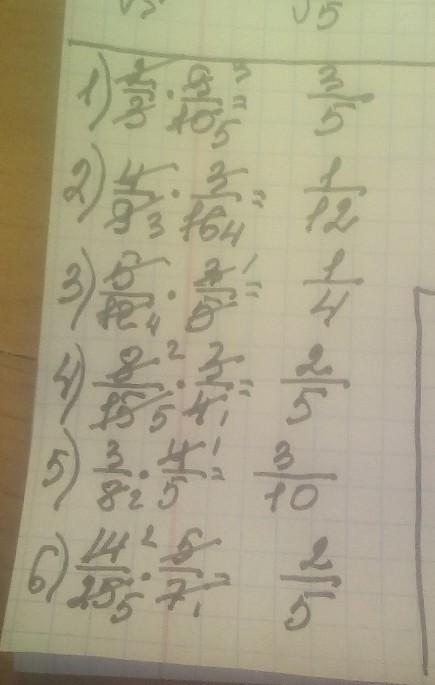 √5
1) 2/3 · 9/10 = 3/5
2) 4/9 · 3/16 = 1/12
3) 5/12 · 3/5 = 1/4
4) 8/15 · 3/4 = 2/5
5) 3/8 · 4/5 = 3/10
6) 14/25 · 5/7 = 2/5